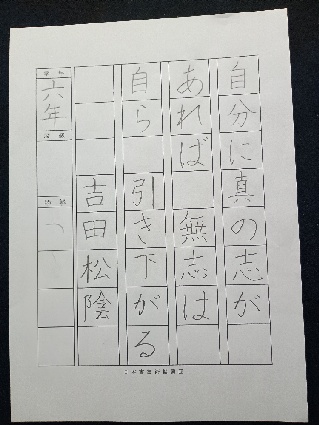 自分に真の志が
あれば 無志は
自ら 引き下がる
吉田松陰
六年